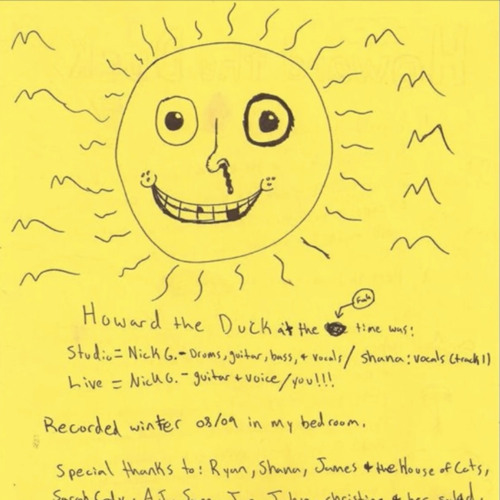 Fuck
Howard the Duck at the time was:
Studio = Nick G. - Drums, guitar, bass, + vocals / Shana: vocals (track 1)
Live = Nick G. - guitar + voice / you!!!
Recorded winter 08/09 in my bedroom.
Special thanks to: Ryan, Shana, James + the House of Cats,